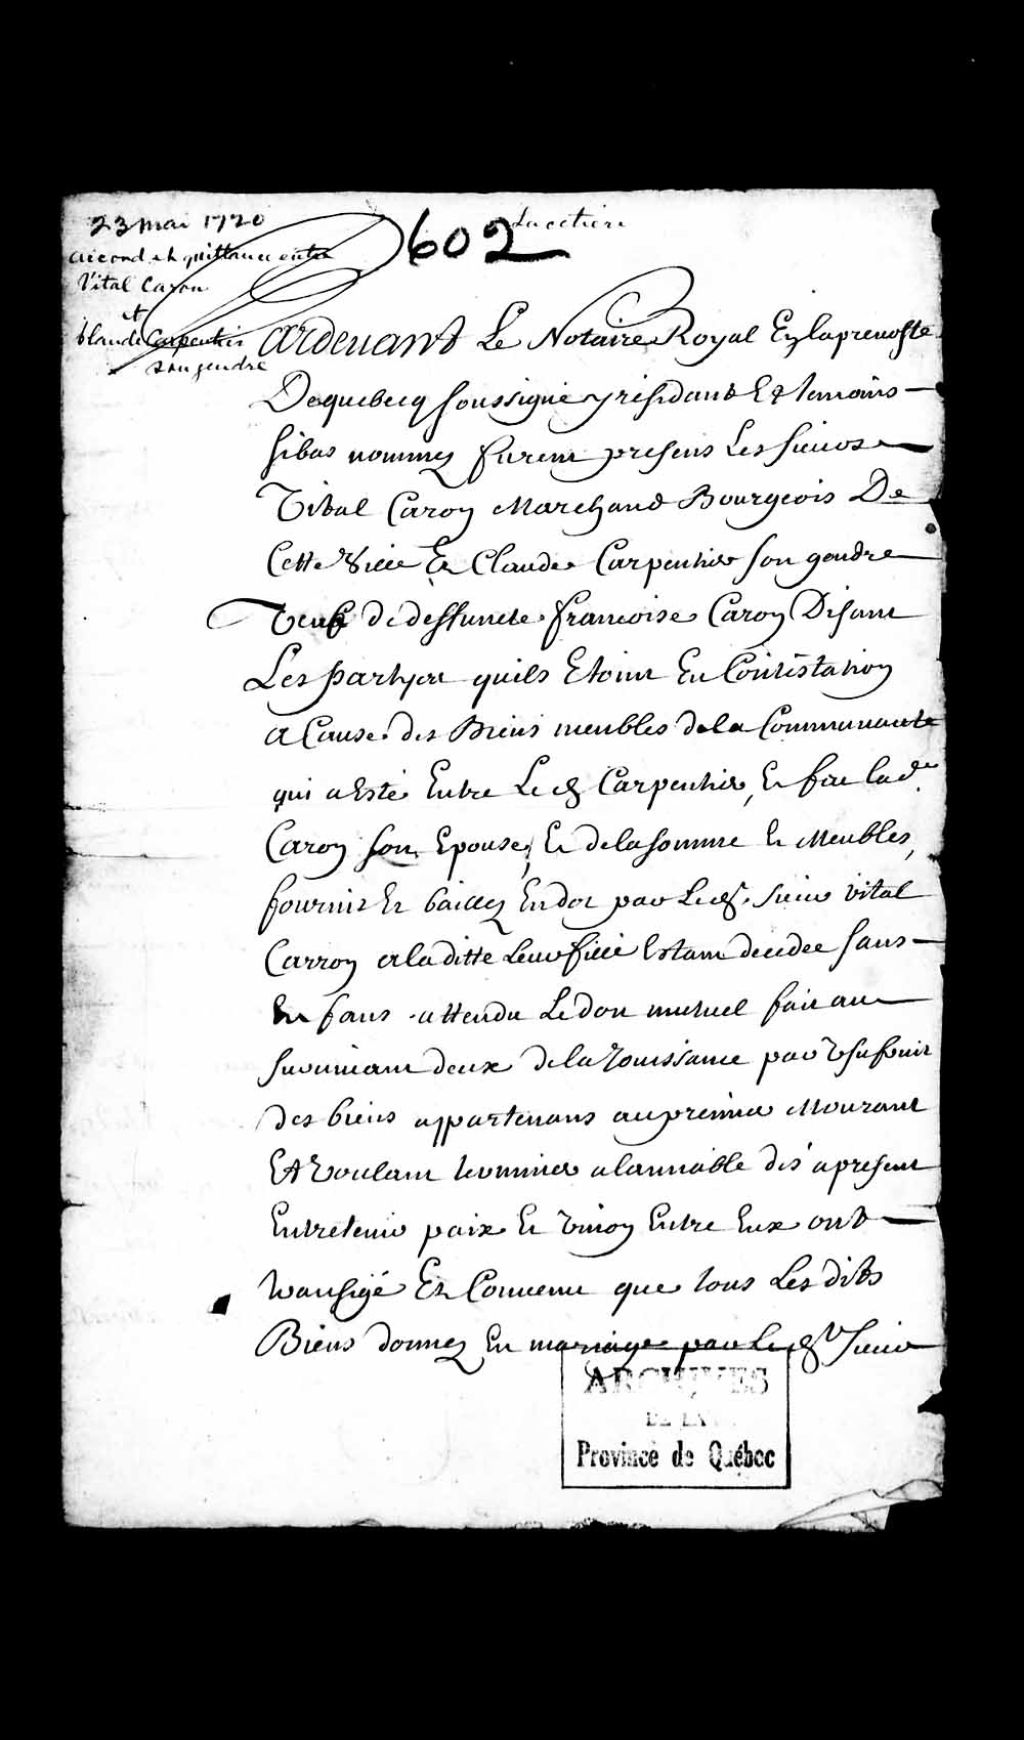 23 mai 1720
accord et quittance entre
Vital Caron
et
Claude Carpentier
son gendre
602
Lacetiere
Pardevant Le Notaire Royal En la prevoste
De quebecq soussigné y residant Et temoins
sibas nommez furent presens Les sieurs
Vital Caron Marchand Bourgeois De
Cette ville Et Claude Carpentier son gendre
Veuf de deffuncte francoise Caron Disant
Les partyes quils Etoint En Contéstation
a Cause des Biens meubles de la Communauté
qui a Esté Entre Le d. Carpentier, Et feue lad.e
Caron son Epouse, Et de la somme Et Meubles,
fournis Et baillez En dot par Led. sieur vital
Carron a la ditte leur fille Estant decedee sans
Enfans attendu Le don mutuel fait au
survivant deux de la Jouissance par Usufruit
des biens appartenans au premier Mourant
Et Voulant terminer a lamiable dés a present
Entretenir paix Et Union Entre Eux ont
transigé Et Convenu que tous Les dits
Biens donnez En mariage par Led. Sieur
ARCHIVES
DE LA
Province de Québec